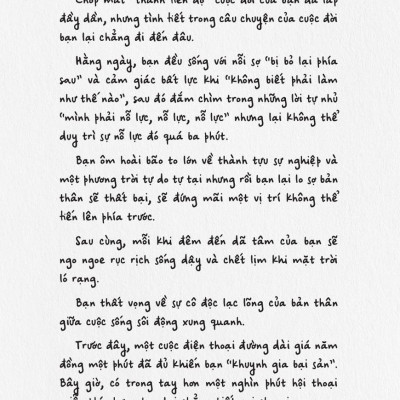 đầy dần, nhưng tình tiết trong câu chuyện của cuộc đời
bạn lại chẳng đi đến đâu.
Hằng ngày, bạn đều sống với nỗi sợ "bị bỏ lại phía
sau" và cảm giác bất lực khi "không biết phải làm
như thế nào", sau đó đắm chìm trong những lời tự nhủ
"mình phải nỗ lực, nỗ lực, nỗ lực" nhưng lại không thể
duy trì sự nỗ lực đó quá ba phút.
Bạn ôm hoài bão to lớn về thành tựu sự nghiệp và
một phương trời tự do tự tại nhưng rồi bạn lại lo sợ bản
thân sẽ thất bại, sẽ đứng mãi một vị trí không thể
tiến lên phía trước.
Sau cùng, mỗi khi đêm đến dã tâm của bạn sẽ
ngo ngoe rục rịch sống dậy và chết lịm khi mặt trời
ló rạng.
Bạn thất vọng về sự cô độc lạc lõng của bản thân
giữa cuộc sống sôi động xung quanh.
Trước đây, một cuộc điện thoại đường dài giá năm
đồng một phút đã đủ khiến bạn "khuynh gia bại sản".
Bây giờ, có trong tay hơn một nghìn phút hội thoại